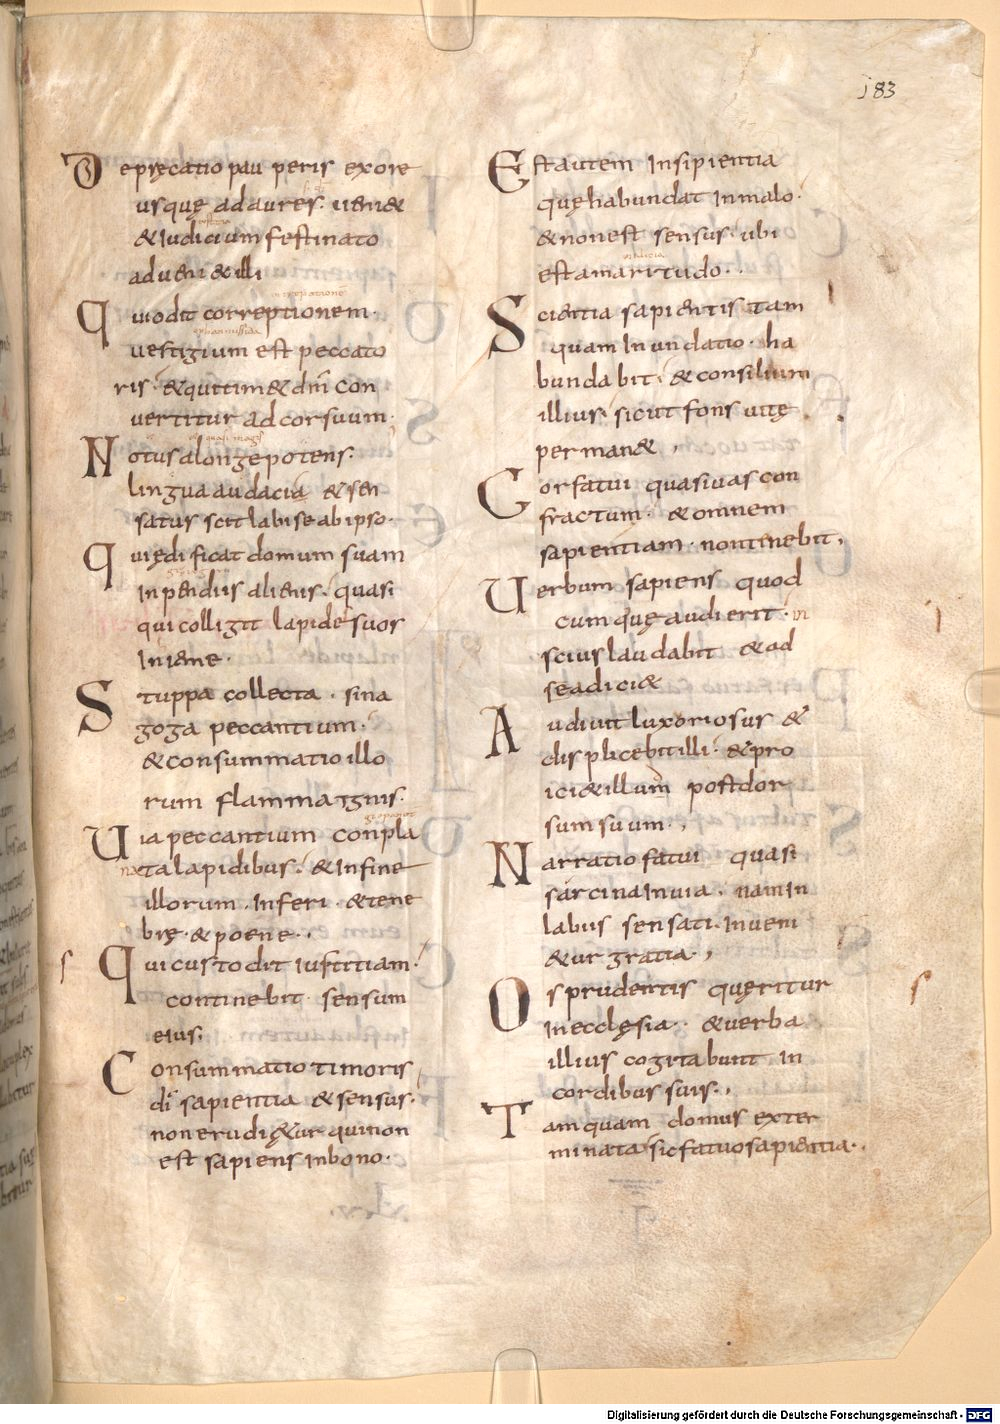 183
Depręcatio pauperis exore
usquę adaures. ueni&
&iudicium festinato
adueni&illi
Quiodit correptionem.
uestigium est peccato
ris. &quitim&dnm con
vertitur adcorsuum.
Notusalongepotens.
linguaaudacia &sen
satus scit labiseabipso.
Quiędificat domum suam
Inpendiis alienis. quasi
quicolligit lapidesuor
Inieme.
Stuppa collecta. sina
goga peccantium.
&consummatioillo
rum flammaignis.
Uiapeccantium conpla
talapidibus. &Infine
illorum. Inferi. &tene
brę. &poene.
Quicustodit iustitiam.
continebit sensum
eius.
Consummatio timoris
di sapientia &sensus.
nonerudi&ur quinon
est sapiens Inbono.
Estautem Insipientia
quęhabundat Inmalo.
&nonest sensus. ubi
estamarritudo.
Scientia sapientis tam
quam Inundatio. ha
bundabit. &consilium
illius. sicut fons uitę
perman&
Corfatui quasiuas con
fractum. &omnem
sapientiam. nontenebit.
Uerbum sapiens quod
cumquęaudierit. in
scius laudabit &ad
seadici&
Audiuit luxoriosus &
displicebitilli. &pro
ici&illum postdor
sumsuum.
Narratio fatui quasi
sarcinaInuia. namIn
labiis sensati. Inueni
&ur gratia.
Osprudentis quęritur
Inecclęsia. &uerba
illius cogitabunt in
cordibus suis.
Tamquam domus exter
minata sicfatuosapientia.
Digitalisierung gefördert durch die Deutsche Forschungsgemeinschaft - DFG